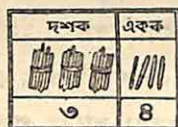 দশক একক
৩ ৪